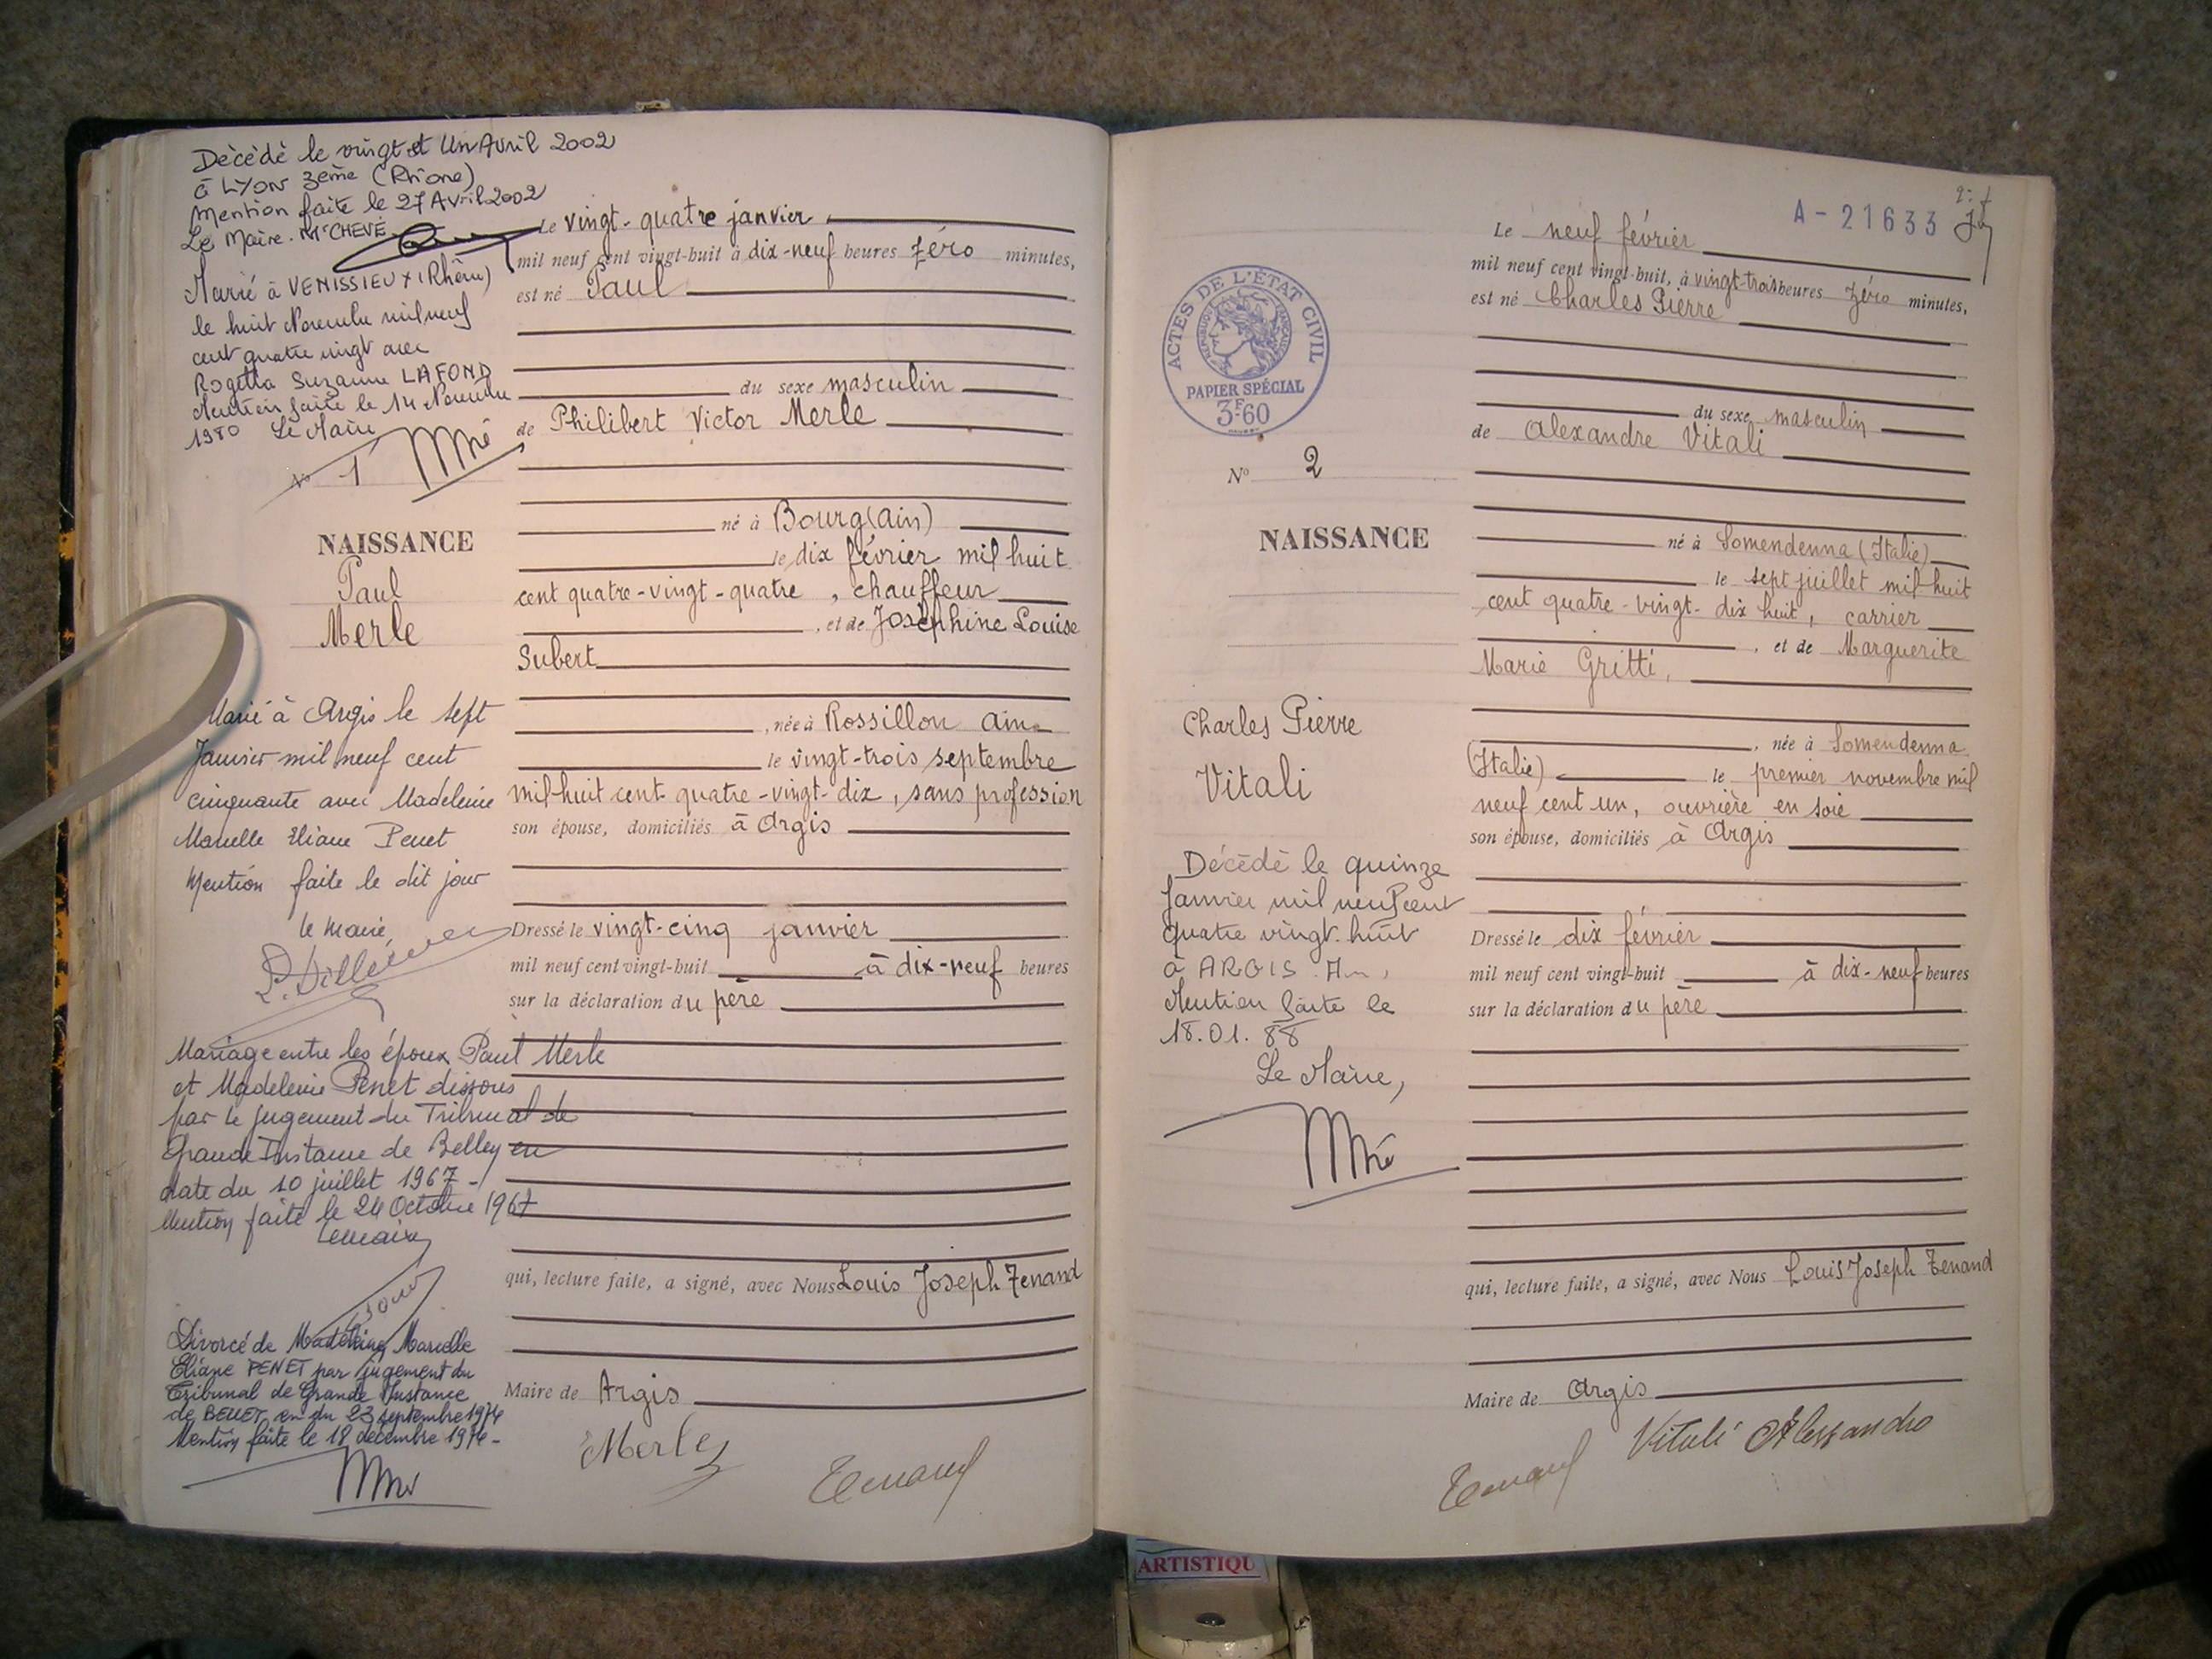 Décédé le vingt et Un Avril 2002
à LYON 3ème (Rhône)
Mention faite le 27 Avril 2002
Le Maire. Mr CHEVÉ
Marié à VENISSIEUX (Rhône)
le huit Novembre mil neuf
cent quatre vingt avec
Suzanne LAFOND
Mention faite le 14 Novembre
1980 Le Maire
N° 1
NAISSANCE
Paul
Merle
Marié à Argis le sept
Janvier mil neuf cent
cinquante avec Madeleine
Marielle Eliane Penet
Mention faite le dit jour
le maire,
Mariage entre les époux Paul Merle
et Madeleine Penet dissous
par le jugement du Tribunal de
Grande Instance de Belley en
date du 10 juillet 1967 -
Mention faite le 24 Octobre 1967
Le maire
Divorcé de Madeleine Marielle
Eliane PENET par jugement du
Tribunal de Grande Instance
de BELLEY en du 23 septembre 1974
Mention faite le 18 décembre 1974 -
Le vingt-quatre janvier
mil neuf cent vingt-huit à dix-neuf heures zéro minutes,
est né Paul
du sexe masculin
de Philibert Victor Merle
né à Bourg (ain)
le dix février mil huit
cent quatre-vingt-quatre, chauffeur
, et de Joséphine Louise
Subert
, née à Rossillon ain
le vingt-trois septembre
mil huit cent quatre-vingt-dix, sans profession
son épouse, domiciliés à Argis
Dressé le vingt-cinq janvier
mil neuf cent vingt-huit à dix-neuf heures
sur la déclaration du père
qui, lecture faite, a signé, avec Nous Louis Joseph Tenand
Maire de Argis
Merle
Tenand
A-21633
ACTES DE L'ÉTAT CIVIL
RÉPUBLIQUE FRANÇAISE
PAPIER SPÉCIAL
3F60
N° 2
NAISSANCE
Charles Pierre
Vitali
Décédé le quinze
Janvier mil neuf cent
quatre vingt huit
à ARGIS Ain,
Mention faite le
18.01.88
Le Maire,
Le neuf février
mil neuf cent vingt-huit, à vingt-trois heures zéro minutes,
est né Charles Pierre
du sexe masculin
de Alexandre Vitali
né à Somendenna (Italie)
le sept juillet mil huit
cent quatre-vingt-dix huit, carrier
, et de Marguerite
Marie Gritti,
, née à Somendenna
(Italie) le premier novembre mil
neuf cent un, ouvrière en soie
son épouse, domiciliés à Argis
Dressé le dix février
mil neuf cent vingt-huit à dix-neuf heures
sur la déclaration du père
qui, lecture faite, a signé, avec Nous Louis Joseph Tenand
Maire de Argis
Tenand
Vitali Alessandro
ARTISTIQU